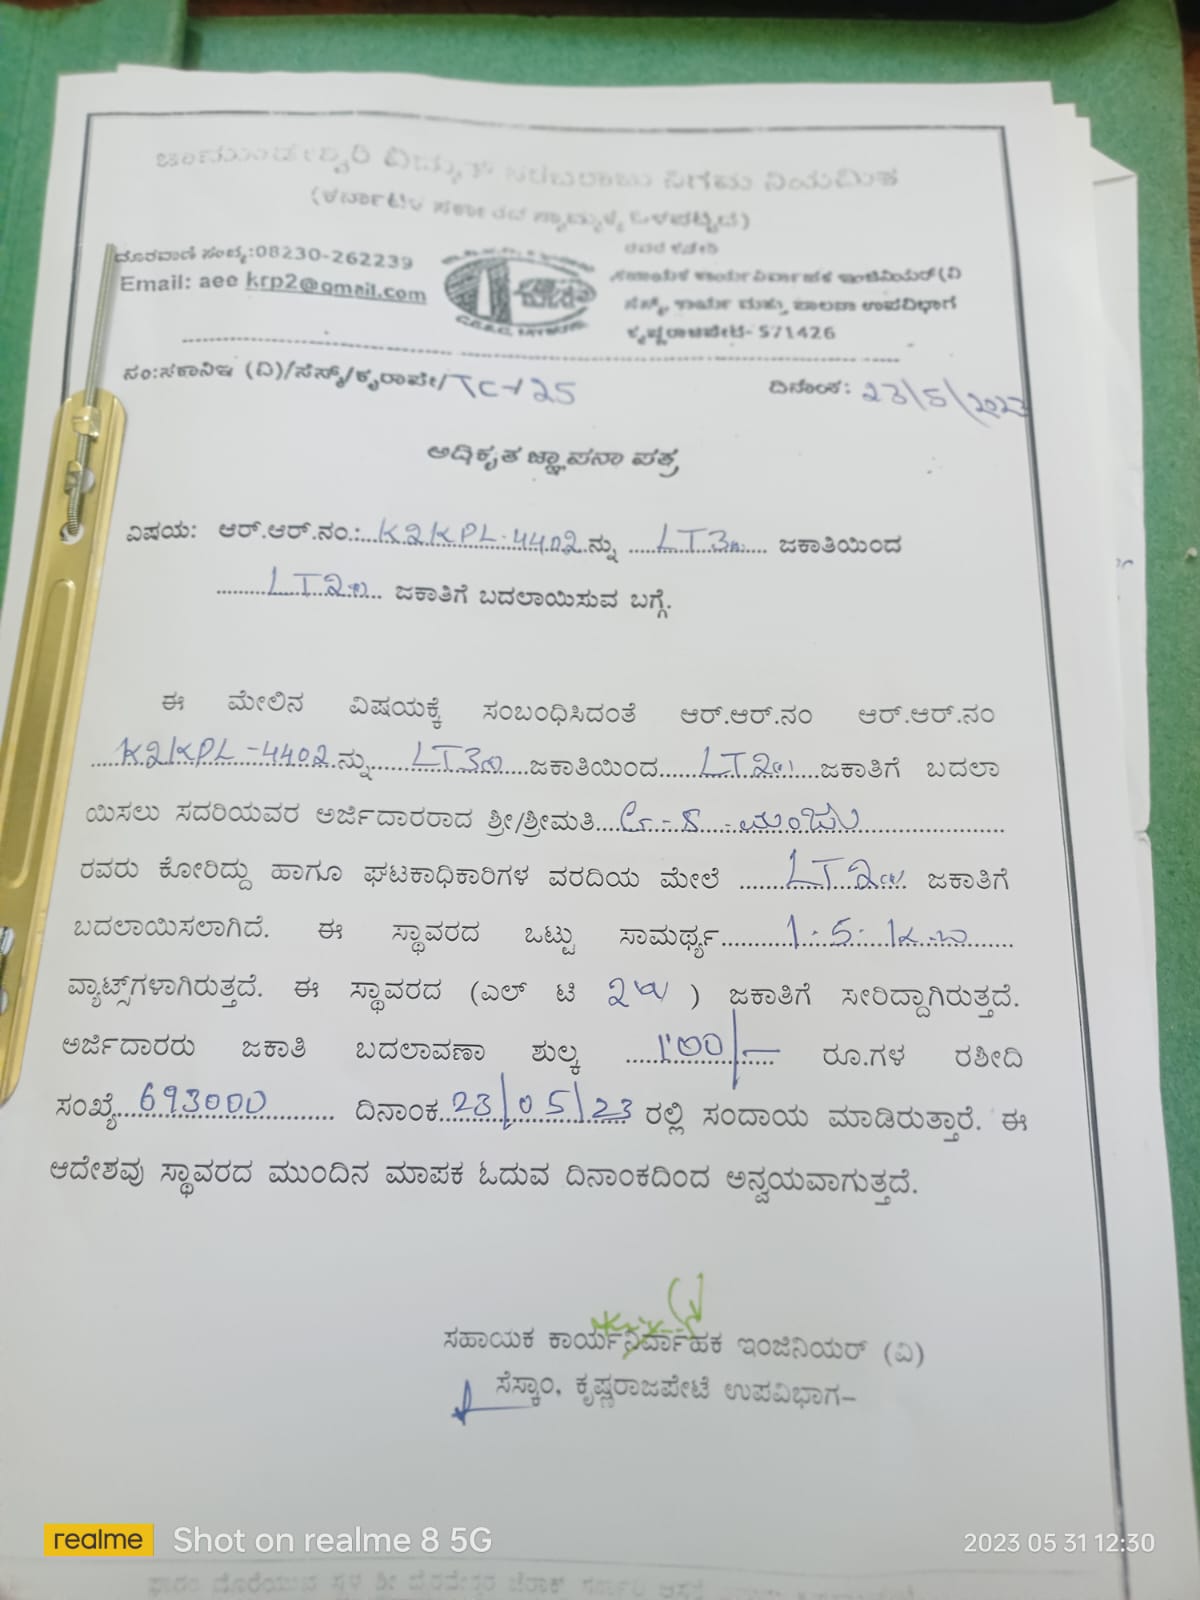 ಚಾಮುಂಡೇಶ್ವರಿ ವಿದ್ಯುತ್ ಸರಬರಾಜು ನಿಗಮ ನಿಯಮಿತ
(ಕರ್ನಾಟಕ ಸರ್ಕಾರದ ಸ್ವಾಮ್ಯಕ್ಕೆ ಒಳಪಟ್ಟಿದೆ)
ದೂರವಾಣಿ ಸಂಖ್ಯೆ:08230-262239
Email: aee krp2@gmail.com
ರವರ ಕಛೇರಿ
ಸಹಾಯಕ ಕಾರ್ಯನಿರ್ವಾಹಕ ಇಂಜಿನಿಯರ್(ವಿ
ಸೆಸ್ಕ್, ಕಾರ್ಯ ಮತ್ತು ಪಾಲನಾ ಉಪವಿಭಾಗ
ಕೃಷ್ಣರಾಜಪೇಟೆ- 571426
ಸಂ:ಸಕಾನಿಇ (ವಿ)/ಸೆಸ್ಕ್/ಕೃರಾಪೇ/TC-125
ದಿನಾಂಕ: 23/5/2023
ಅಧಿಕೃತ ಜ್ಞಾಪನಾ ಪತ್ರ
ವಿಷಯ: ಆರ್.ಆರ್.ನಂ.:K2KPL-4402ನ್ನು ......LT3...... ಜಕಾತಿಯಿಂದ
.........LT2...... ಜಕಾತಿಗೆ ಬದಲಾಯಿಸುವ ಬಗ್ಗೆ.
ಈ ಮೇಲಿನ ವಿಷಯಕ್ಕೆ ಸಂಬಂಧಿಸಿದಂತೆ ಆರ್.ಆರ್.ನಂ ಆರ್.ಆರ್.ನಂ
....K2KPL-4402.ನ್ನು......LT3.....ಜಕಾತಿಯಿಂದ......LT2.....ಜಕಾತಿಗೆ ಬದಲಾ
ಯಿಸಲು ಸದರಿಯವರ ಅರ್ಜಿದಾರರಾದ ಶ್ರೀ/ಶ್ರೀಮತಿ....G-S-ಮಂಜು..............
ರವರು ಕೋರಿದ್ದು ಹಾಗೂ ಘಟಕಾಧಿಕಾರಿಗಳ ವರದಿಯ ಮೇಲೆ .......LT2..... ಜಕಾತಿಗೆ
ಬದಲಾಯಿಸಲಾಗಿದೆ. ಈ ಸ್ಥಾವರದ ಒಟ್ಟು ಸಾಮರ್ಥ್ಯ..........1.5.K.W......
ವ್ಯಾಟ್ಸ್‌ಗಳಾಗಿರುತ್ತದೆ. ಈ ಸ್ಥಾವರದ (ಎಲ್ ಟಿ 2 ) ಜಕಾತಿಗೆ ಸೇರಿದ್ದಾಗಿರುತ್ತದೆ.
ಅರ್ಜಿದಾರರು ಜಕಾತಿ ಬದಲಾವಣಾ ಶುಲ್ಕ .....100/-.. ರೂ.ಗಳ ರಶೀದಿ
ಸಂಖ್ಯೆ..693000......... ದಿನಾಂಕ..23/05/23 ರಲ್ಲಿ ಸಂದಾಯ ಮಾಡಿರುತ್ತಾರೆ. ಈ
ಆದೇಶವು ಸ್ಥಾವರದ ಮುಂದಿನ ಮಾಪಕ ಓದುವ ದಿನಾಂಕದಿಂದ ಅನ್ವಯವಾಗುತ್ತದೆ.
ಸಹಾಯಕ ಕಾರ್ಯನಿರ್ವಾಹಕ ಇಂಜಿನಿಯರ್ (ವಿ)
ಸೆಸ್ಕಾಂ, ಕೃಷ್ಣರಾಜಪೇಟೆ ಉಪವಿಭಾಗ-
realme Shot on realme 8 5G
2023 05 31 12:30